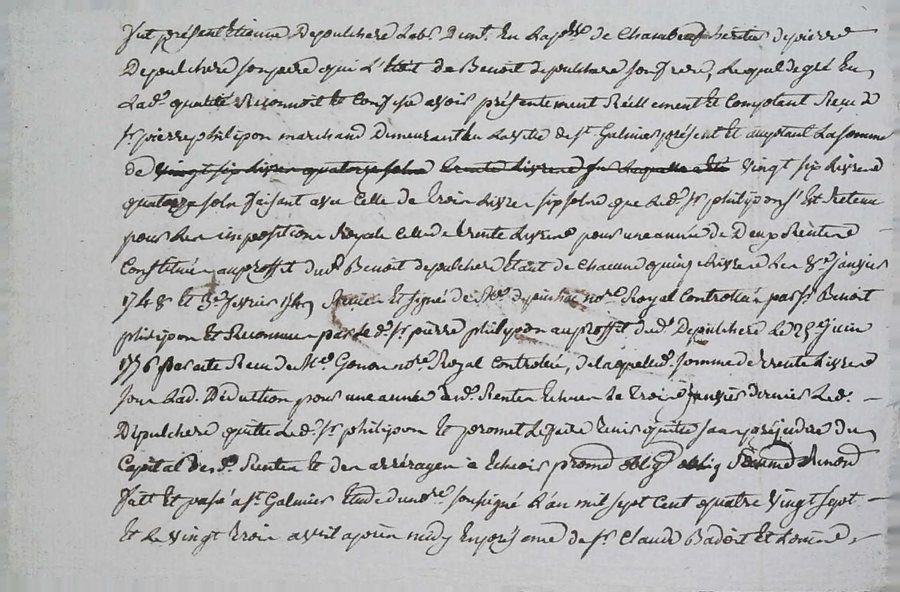 fut présent Etienne Depulchere Lab.r Demt. En La psse de Chambeuf heritier de pierre
Depulchere son pere qui L'était de Benoit depulchere son frere, Lequel de gré En
Lad. qualité Reconnoit Et Confesse avoir présentement Réellement Et Comptant Reçu de
Sr pierre philipon marchand Demeurant En La ville de St Galmier présent Et acceptant La somme
de vingt six Livres quatorze sols trente Livres sur Laquelle a été vingt six Livres
quatorze sols faisant avec Celle de trois Livres six sols que Led. Sr philipon s'Est Retenu
pour Les impositions Royales Celle de trente Livres pour une année de Deux Rentes
Constituées au proffit dud. Benoit depulchere Etant de Chacune quinze Livres Les 8e janvier
1748 et 3e fevrier 1749 Reçues Et signé de Me depuis nore Royal Controllées par Sr Benoit
philipon Et Reconnues par led. Sr pierre philipon au proffit dud. Depulchere Le 25e juin
1776 par acte Reçu de Me Gonon nore Royal Controllé, de laquelle somme de trente Livres
pour Lad. Déduction pour une année desd. Rentes Echues Le trois janvier dernier Led.
Depulchere quitte Led. Sr philipon Et promet Le faire tenir quitte sans préjudice du
Capital desd. Rentes Et des arrérages à Echeoir promet oblig
fait Et passé a St Galmier Etude du nore soussigné L'an mil sept Cent quatre vingt sept
Et Le vingt trois avril après midy En présence de Sr Claude Badoit Et